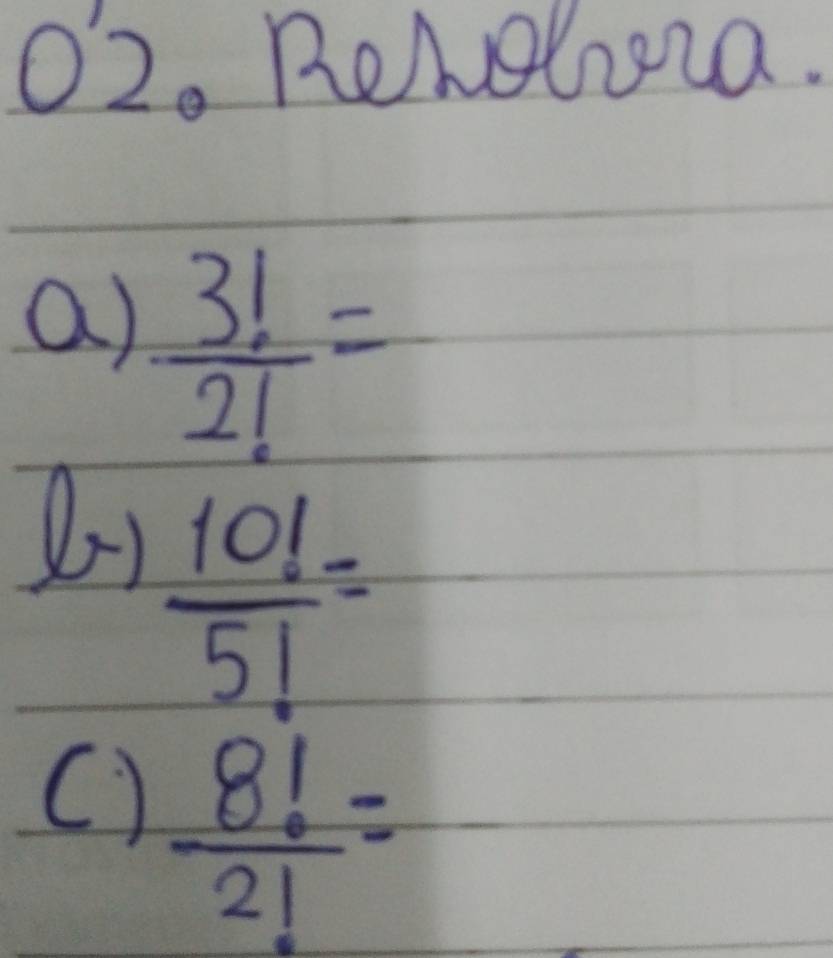 02. Resolva.
a) 3!/2! =
b) 10!/5! =
c) 8!/2! =